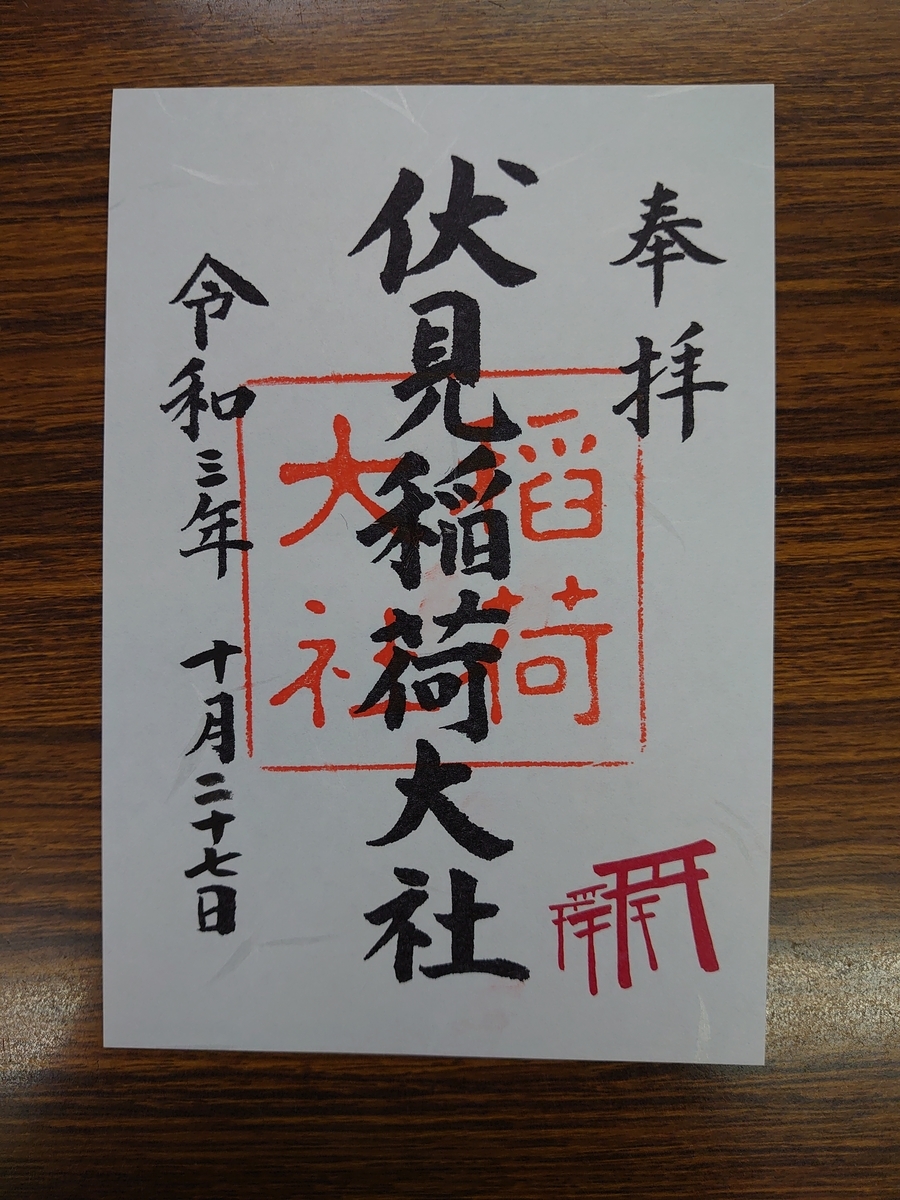 奉拝
伏見稲荷大社
稲荷
大社
令和三年 十月二十七日